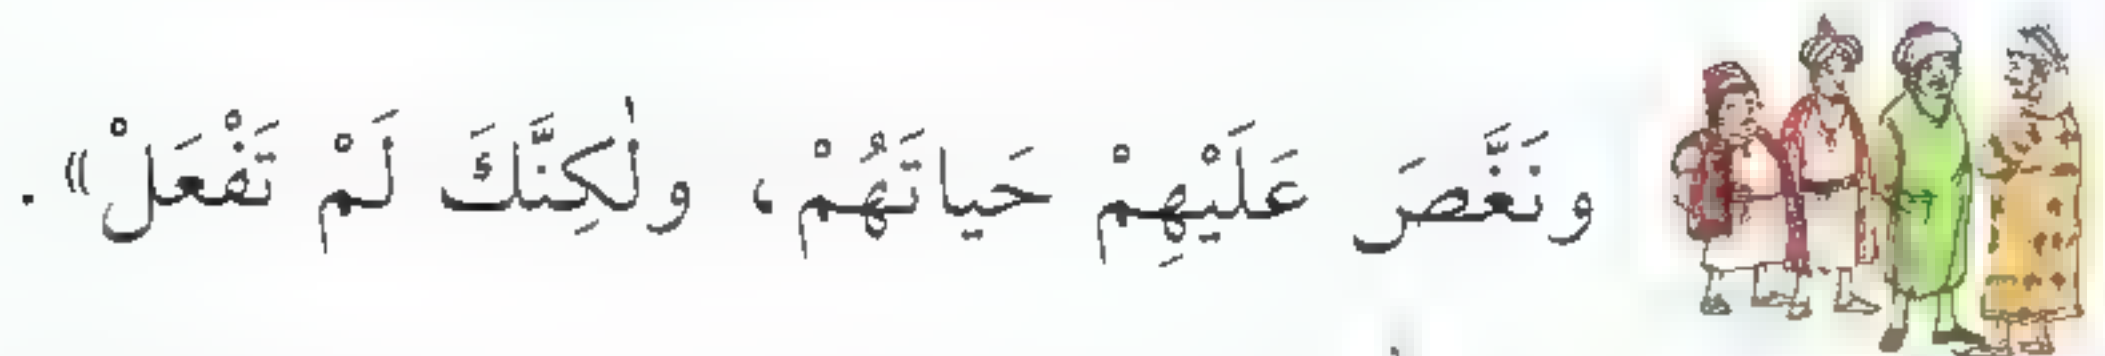 ونَغَّصَ عَلَيْهِمْ حَياتَهُمْ، ولٰكِنَّكَ لَمْ تَفْعَلْ» .